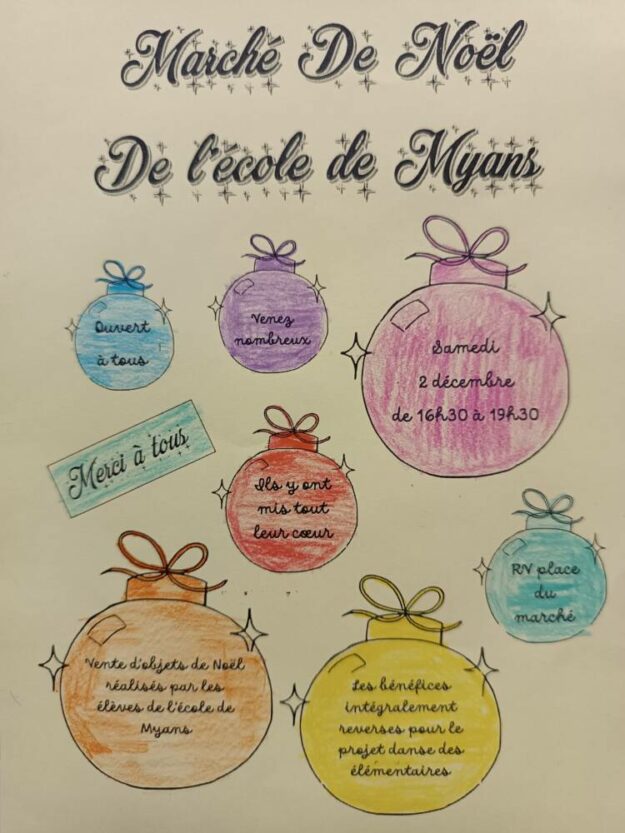 Marché De Noël
De l'école de Myans
Ouvert
à tous
Venez
nombreux
Samedi
2 décembre
de 16h30 à 19h30
Merci à tous
Ils y ont
mis tout
leur cœur
RV place
du
marché
Vente d'objets de Noël
réalisés par les
élèves de l'école de
Myans
Les bénéfices
intégralement
reverses pour le
projet danse des
élémentaires